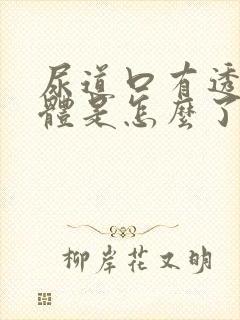 尿道口有透
體是怎麼了
柳岸花又明